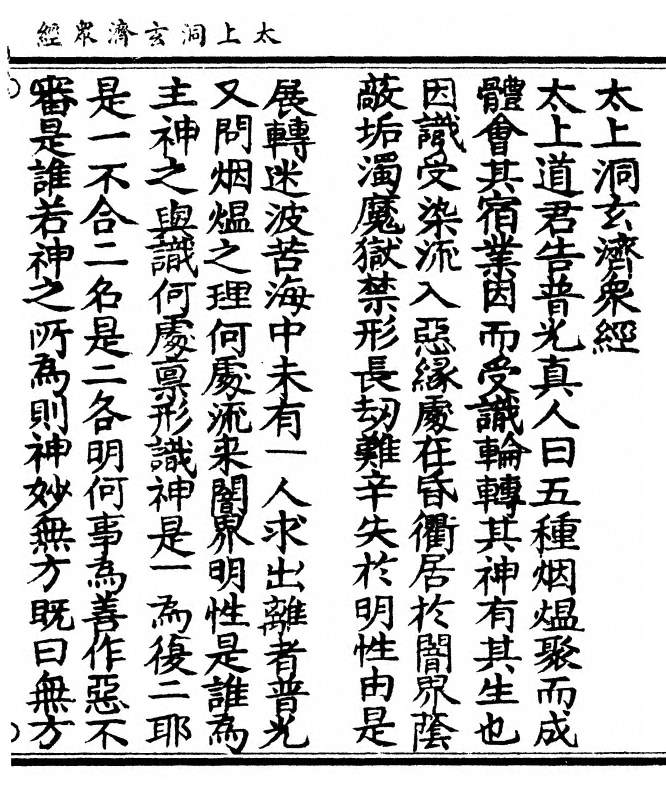 太上洞玄濟眾經
太上洞玄濟衆經
太上道君告普光真人曰五種烟熅聚而成
體會其宿業因而受識輪轉其神有其生也
因識受染流入惡緣處在昏衢居於闇界蔭
蔽垢濁魔獄禁形長刧難辛失於明性由是
展轉迷波苦海中未有一人求出離者普光
又問烟熅之理何處流来闇界明性是誰為
主神之與識何處禀形識神是一為復二耶
是一不合二名是二各明何事為善作惡不
審是誰若神之所為則神妙無方既曰無方